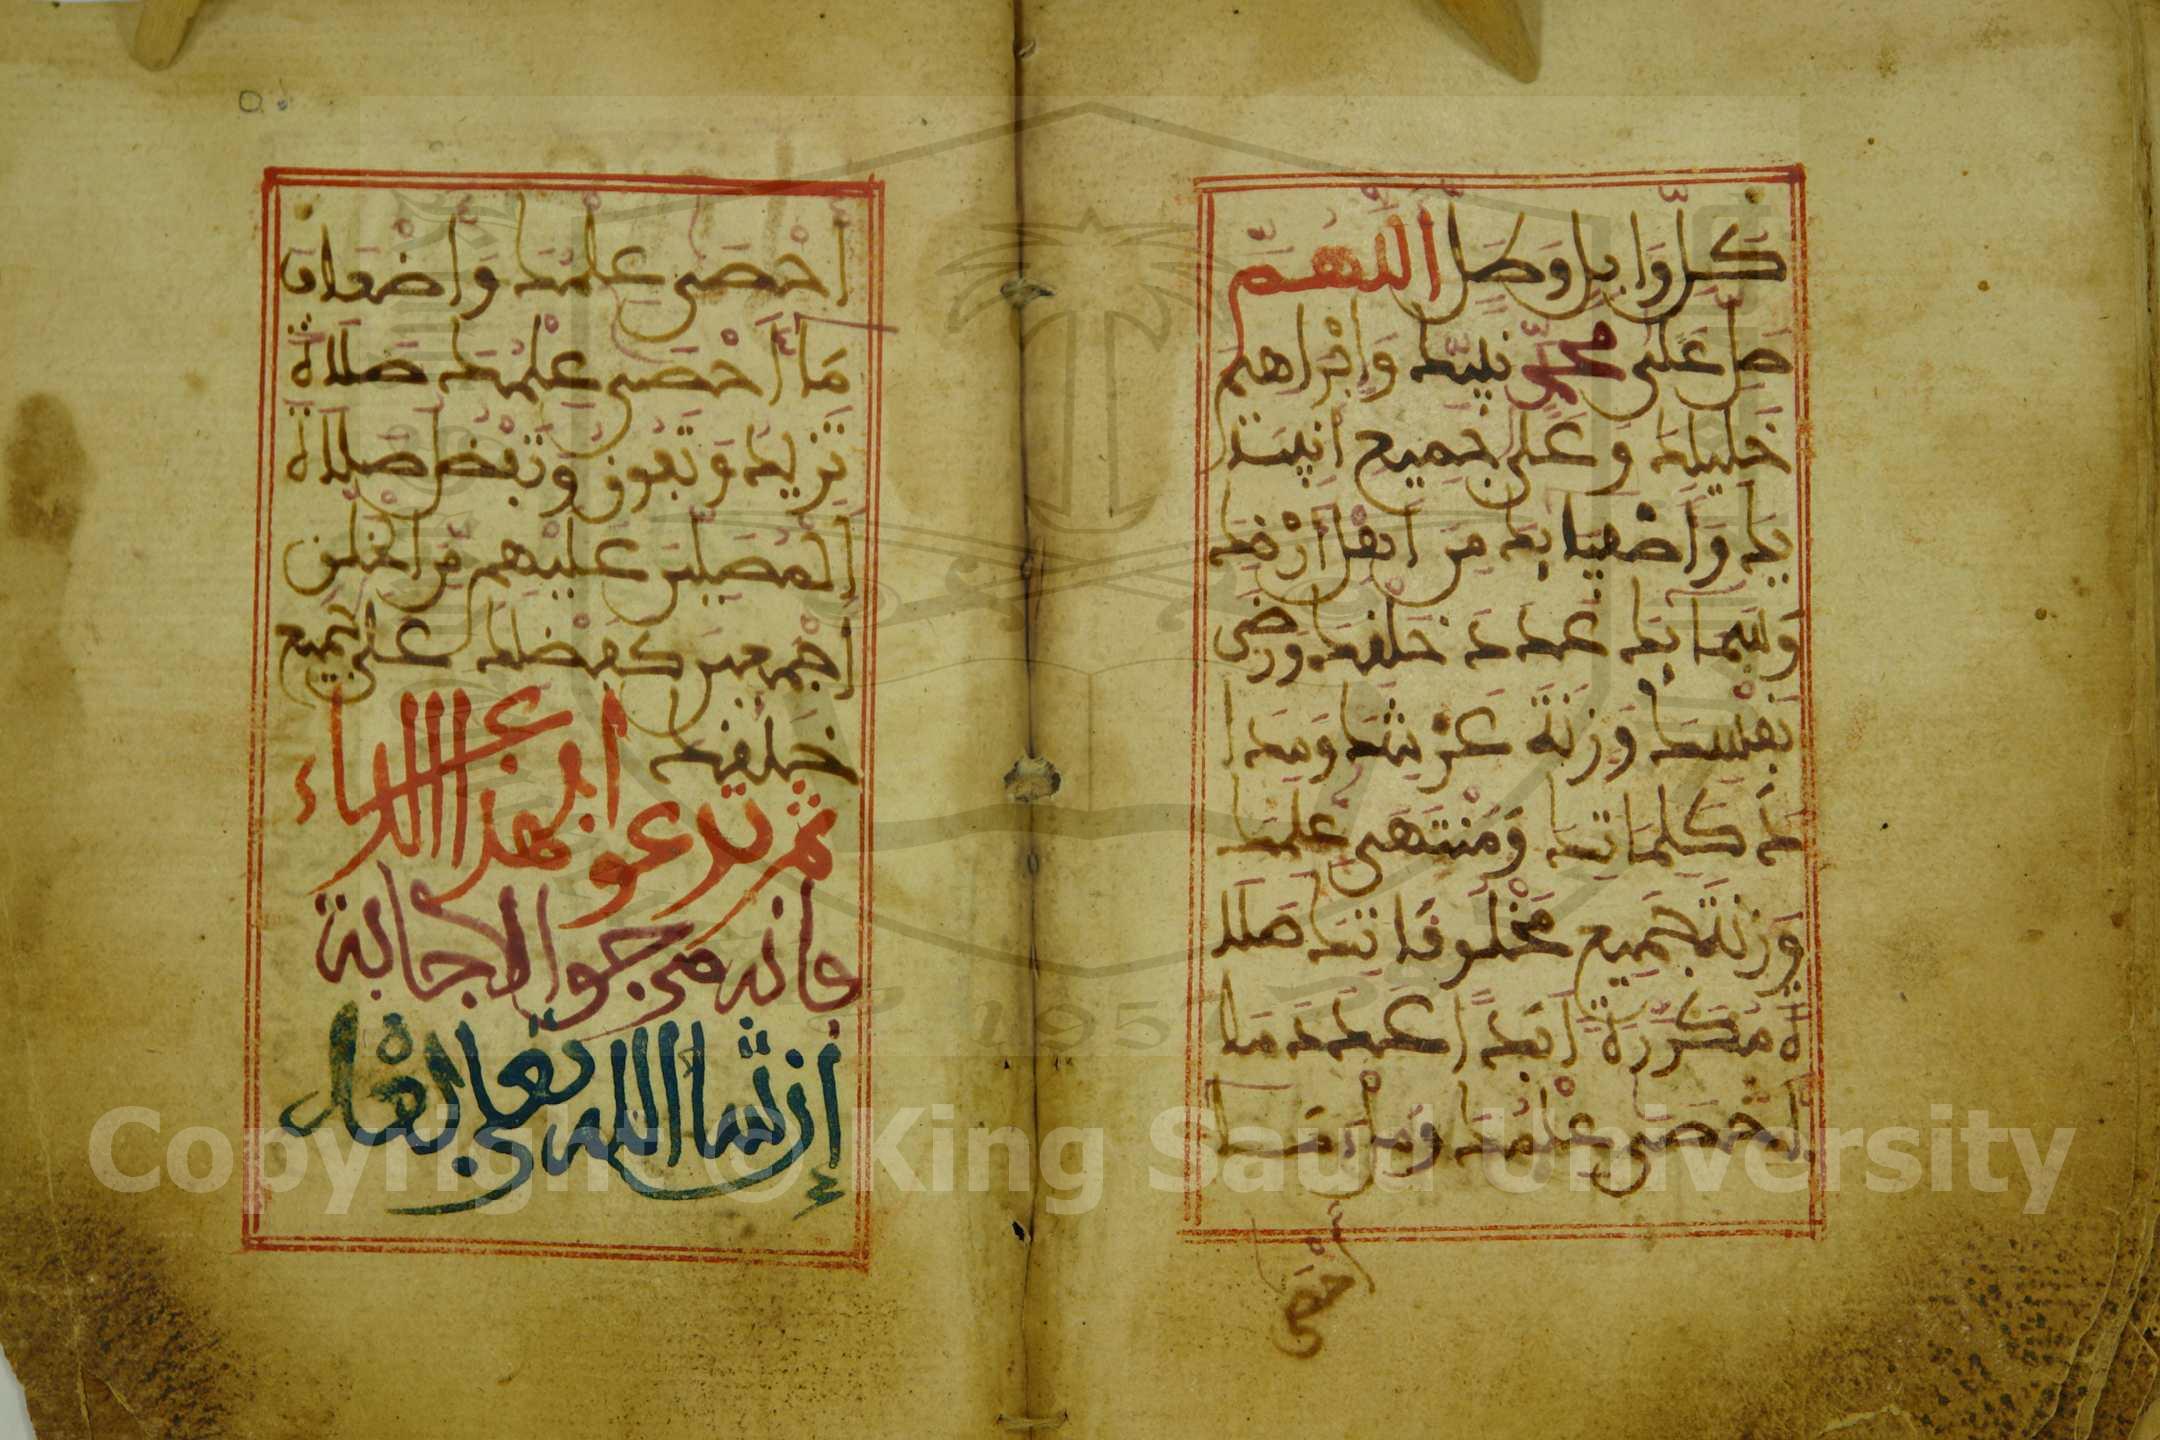 كل وابل وطل اللهم
صل على محمد نبيك وإبراهيم
خليلك وعلى جميع أنبيا
يك وأصفيايك من أهل أرضك
وسمايك عدد خلقك ورضى
نفسك وزنة عرشك ومدا
د كلماتك ومنتهى علمك
وزنة جميع مخلوقاتك صلا
ة مكررة أبدا عدد ما
أحصى علمك وملء ما
أحصى
أحصى علمك وأضعاف
ما أحصى علمك صلاة
تزيد وتفوق وتفضل صلاة
المصلين عليهم من الخلق
أجمعين كفضلك على جميع
خلقك
ثم تدعو بهذا الدعاء
فإنه مرجو الإجابة
إن شاء الله تعلى
Copyright © King Saud University
1957